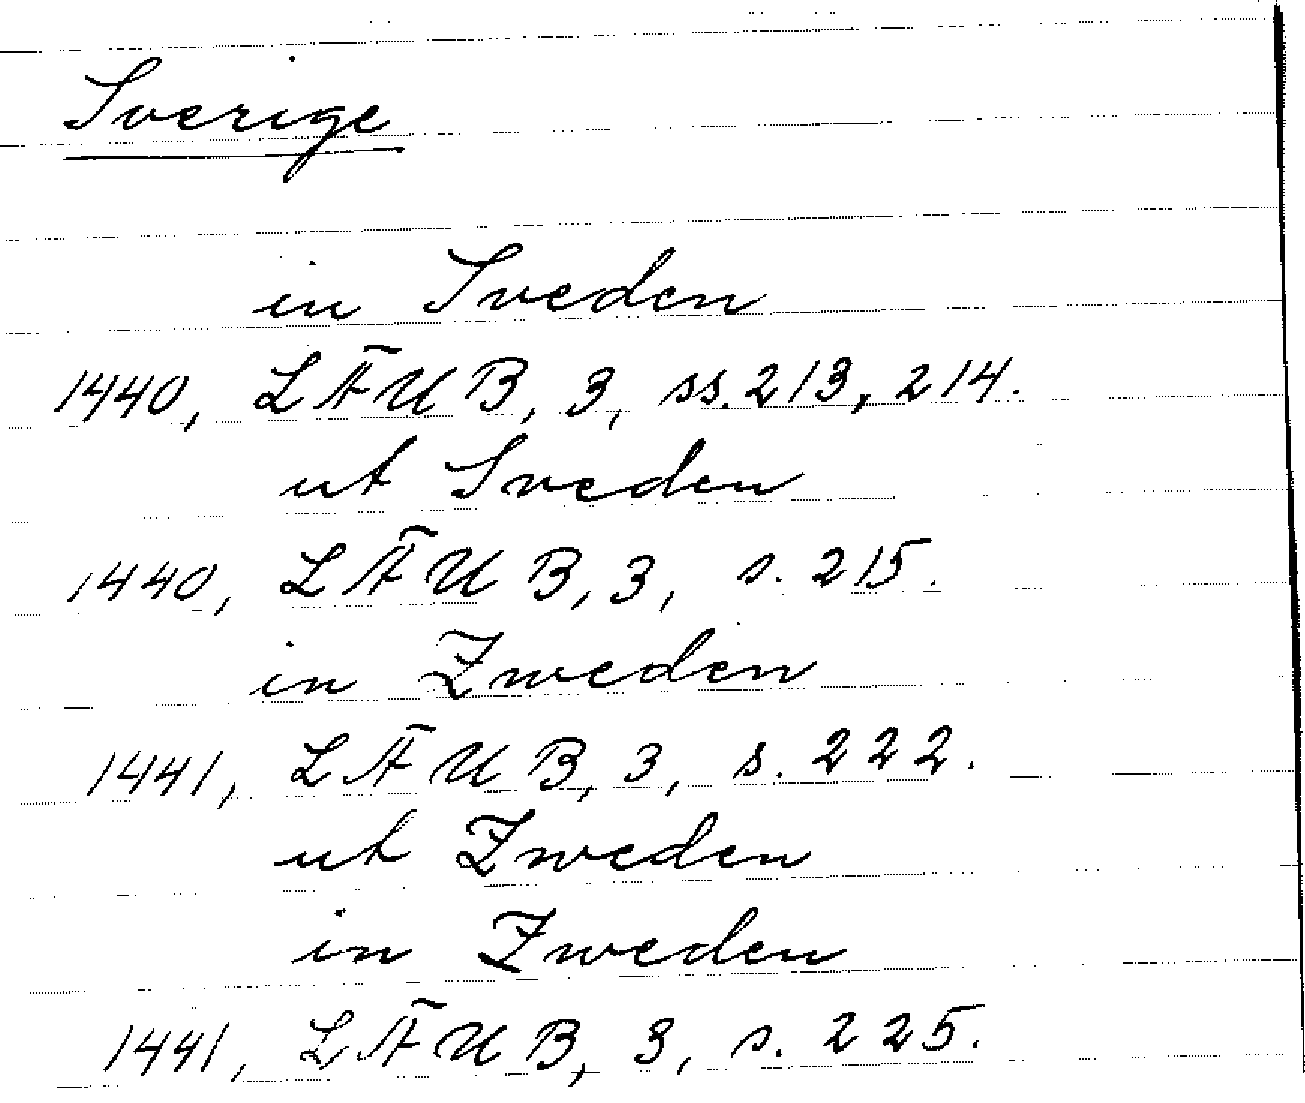 Sverige
in Sveden
1440, LÄUB, 3, ss. 213, 214.
ut Sveden
1440, LÄUB, 3, s. 215.
in Zweden
1441, LÄUB, 3, s. 222.
ut Zweden
in Zweden
1441, LÄUB, 3, s. 225.